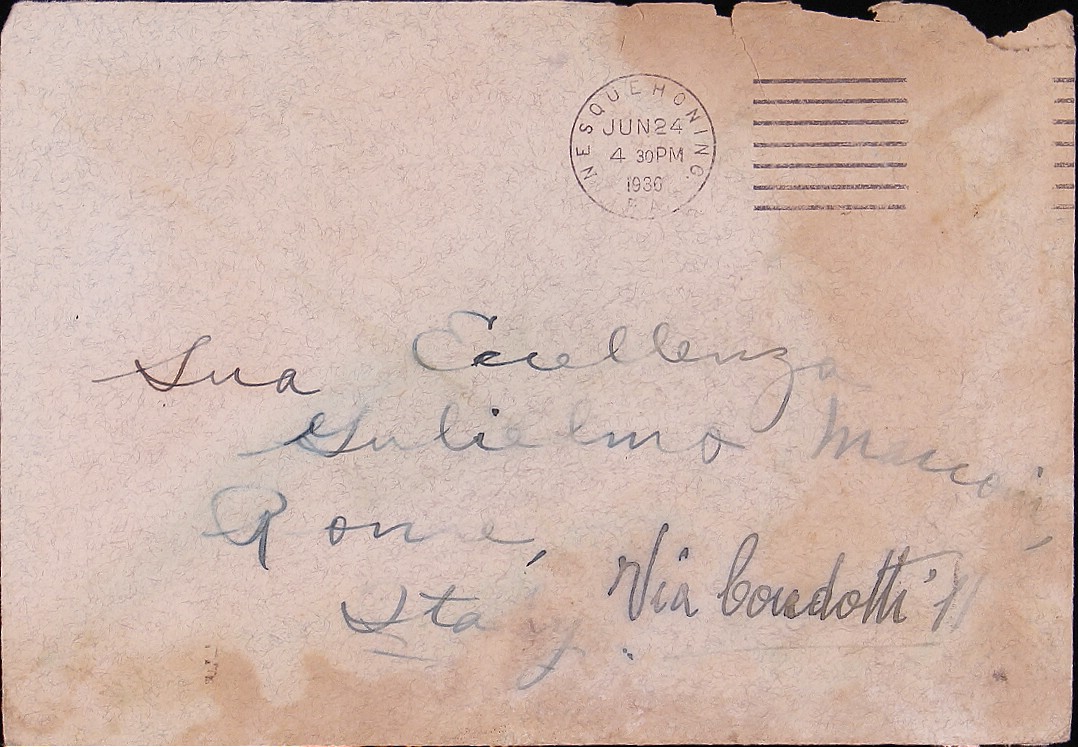 NESQUEHONING.
JUN 24
4 30 PM
1936
PA.
Sua Eccellenza
Gulielmo
Rome,
Italy
Via Condotti 11